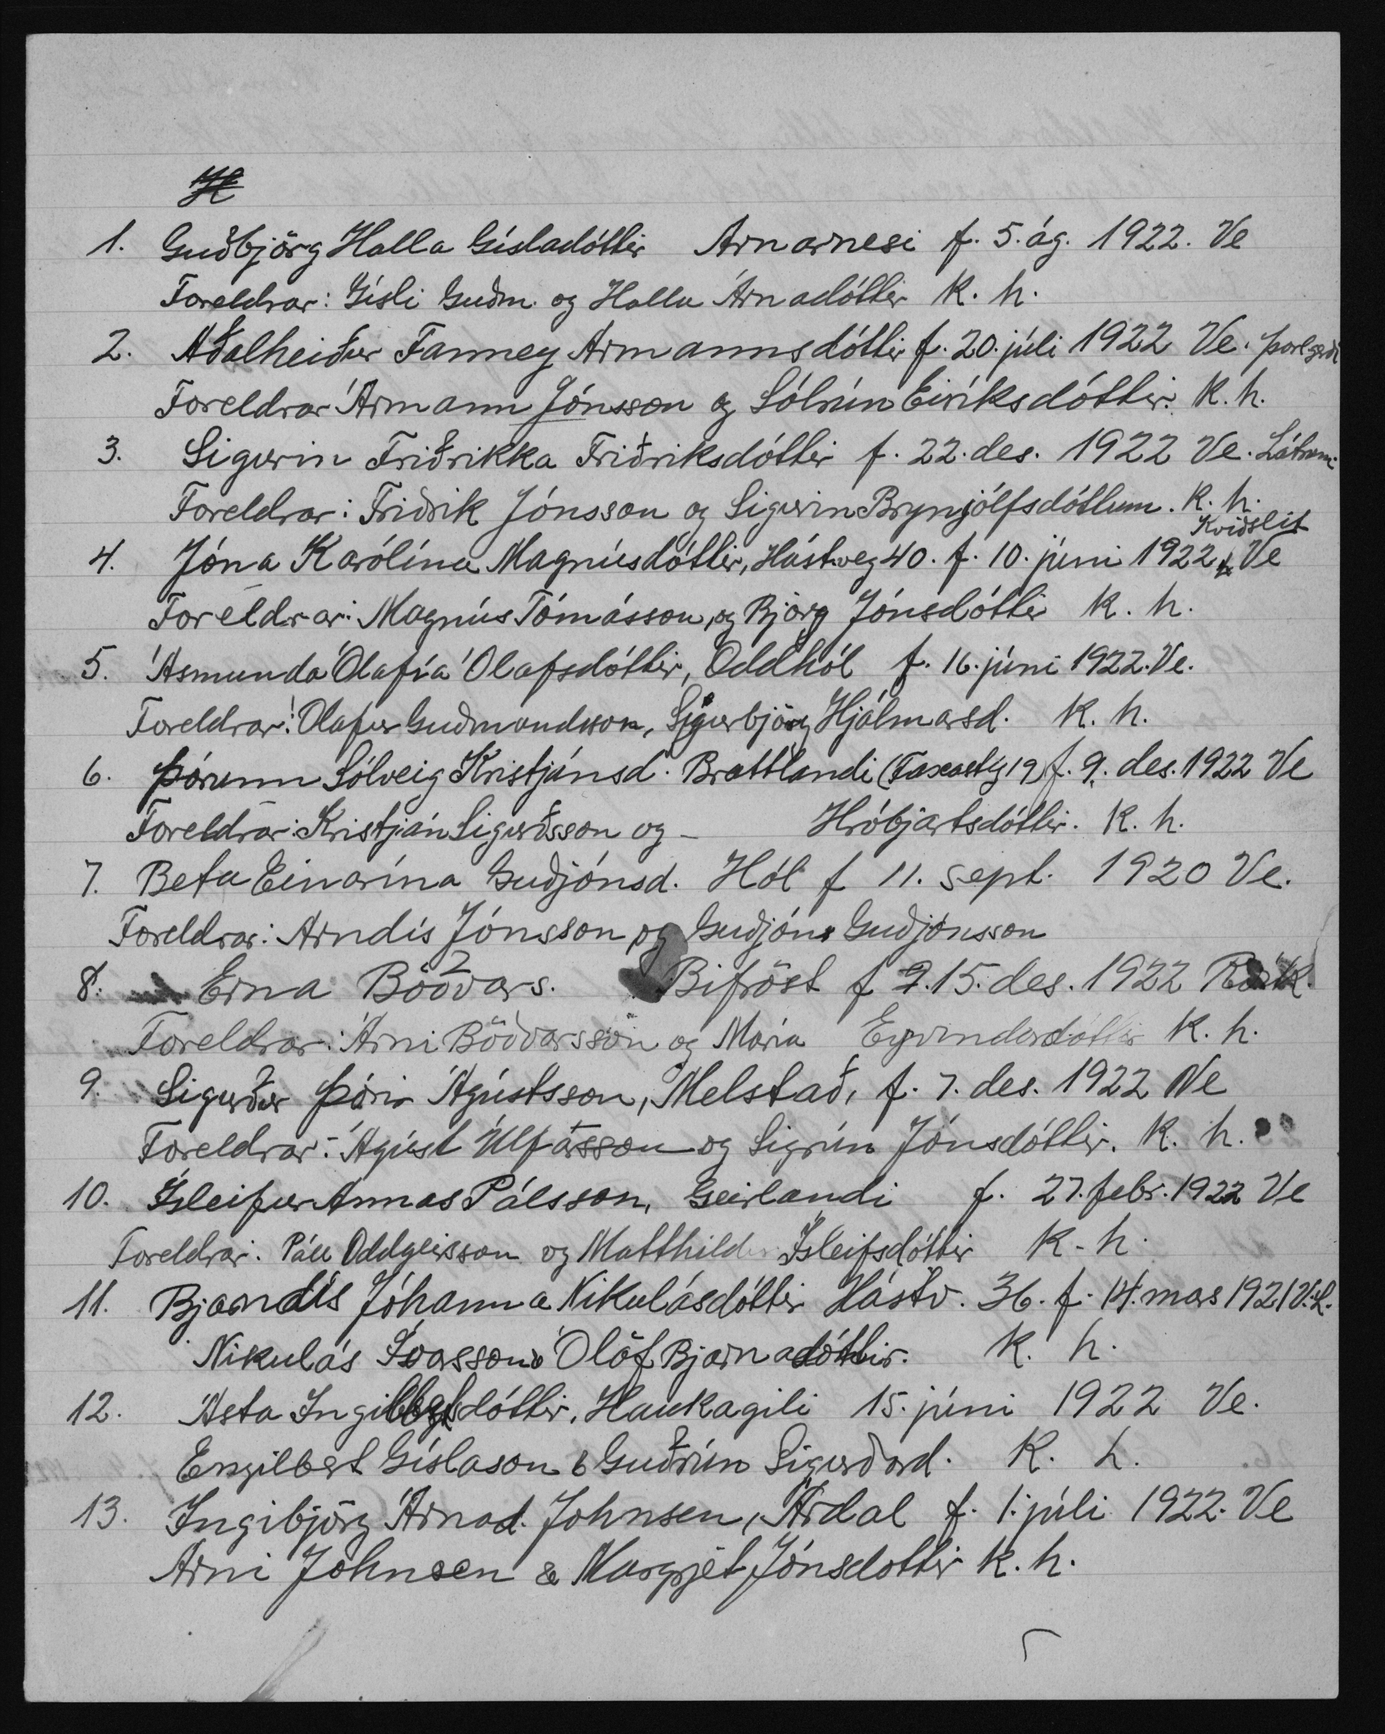 1. Guðbjörg Halla Gísladóttir Arnarnesi f. 5. ág. 1922. Ve
Foreldrar: Gísli Guðm. og Halla Árnadóttir K. h.
2. Aðalheiður Fanney Ármannsdóttir f. 20. júli 1922 Ve. Þorlgerði
Foreldrar Ármann Jónsson og Sólrún Eiríksdóttir. K. h.
3. Sigurin Friðrikka Friðriksdóttir f. 22. des. 1922 Ve. Látrum.
Foreldrar: Friðrik Jónsson og Sigurin Brynjólfsdóttum. K. h.
Kviðslit
4. Jóna Karólína Magnúsdóttir, Hástveg 40. f. 10. júni 1922, Ve
Foreldrar: Magnús Tómásson, og Björg Jónsdóttir K. h.
5. Ásmunda Ólafía Ólafsdóttir, Oddhól f. 16. júni 1922. Ve.
Foreldrar: Ólafur Guðmundsson, Sigurbjörg Hjálmarsd. K. h.
6. Þórunn Sólveig Kristjánsd. Brattlandi (Faxastíg 19) f. 9. des. 1922 Ve
Foreldrar: Kristján Sigurðsson og - Hróbjartsdóttir. K. h.
7. Beta Einarína Guðjónsd. Hól f 11. sept. 1920 Ve.
Foreldrar: Arndís Jónsson og Guðjón Guðjónsson
8. Erna Böðvars. Bifröst f 15. des. 1922
Foreldrar: Árni Böðvarsson og María Eyvindardóttir K. h.
9. Sigurður Þórir Ágústsson, Melstað, f. 7. des. 1922 Ve
Foreldrar: Ágúst Úlfarsson og Sigrún Jónsdóttir. K. h.
10. Ísleifur Annas Pálsson, Geirlandi f. 27. febr. 1922 Ve
Foreldrar: Páll Oddgeirsson og Matthildur Ísleifsdóttir K. h.
11. Bjarndís Jóhanna Nikulásdóttir Hástv. 36. f. 14. mars 1921
Nikulás Ívarsson Ólöf Bjarnadóttir. K. h.
12. Ásta dóttir, Haukagili 15. júni 1922 Ve.
Engilbert Gíslason & Guðrún Sigurðard. K. h.
13. Ingibjörg Árnad. Johnsen, Árdal f. 1. júli 1922. Ve
Árni Johnsen & Margrjét Jónsdottir K. h.